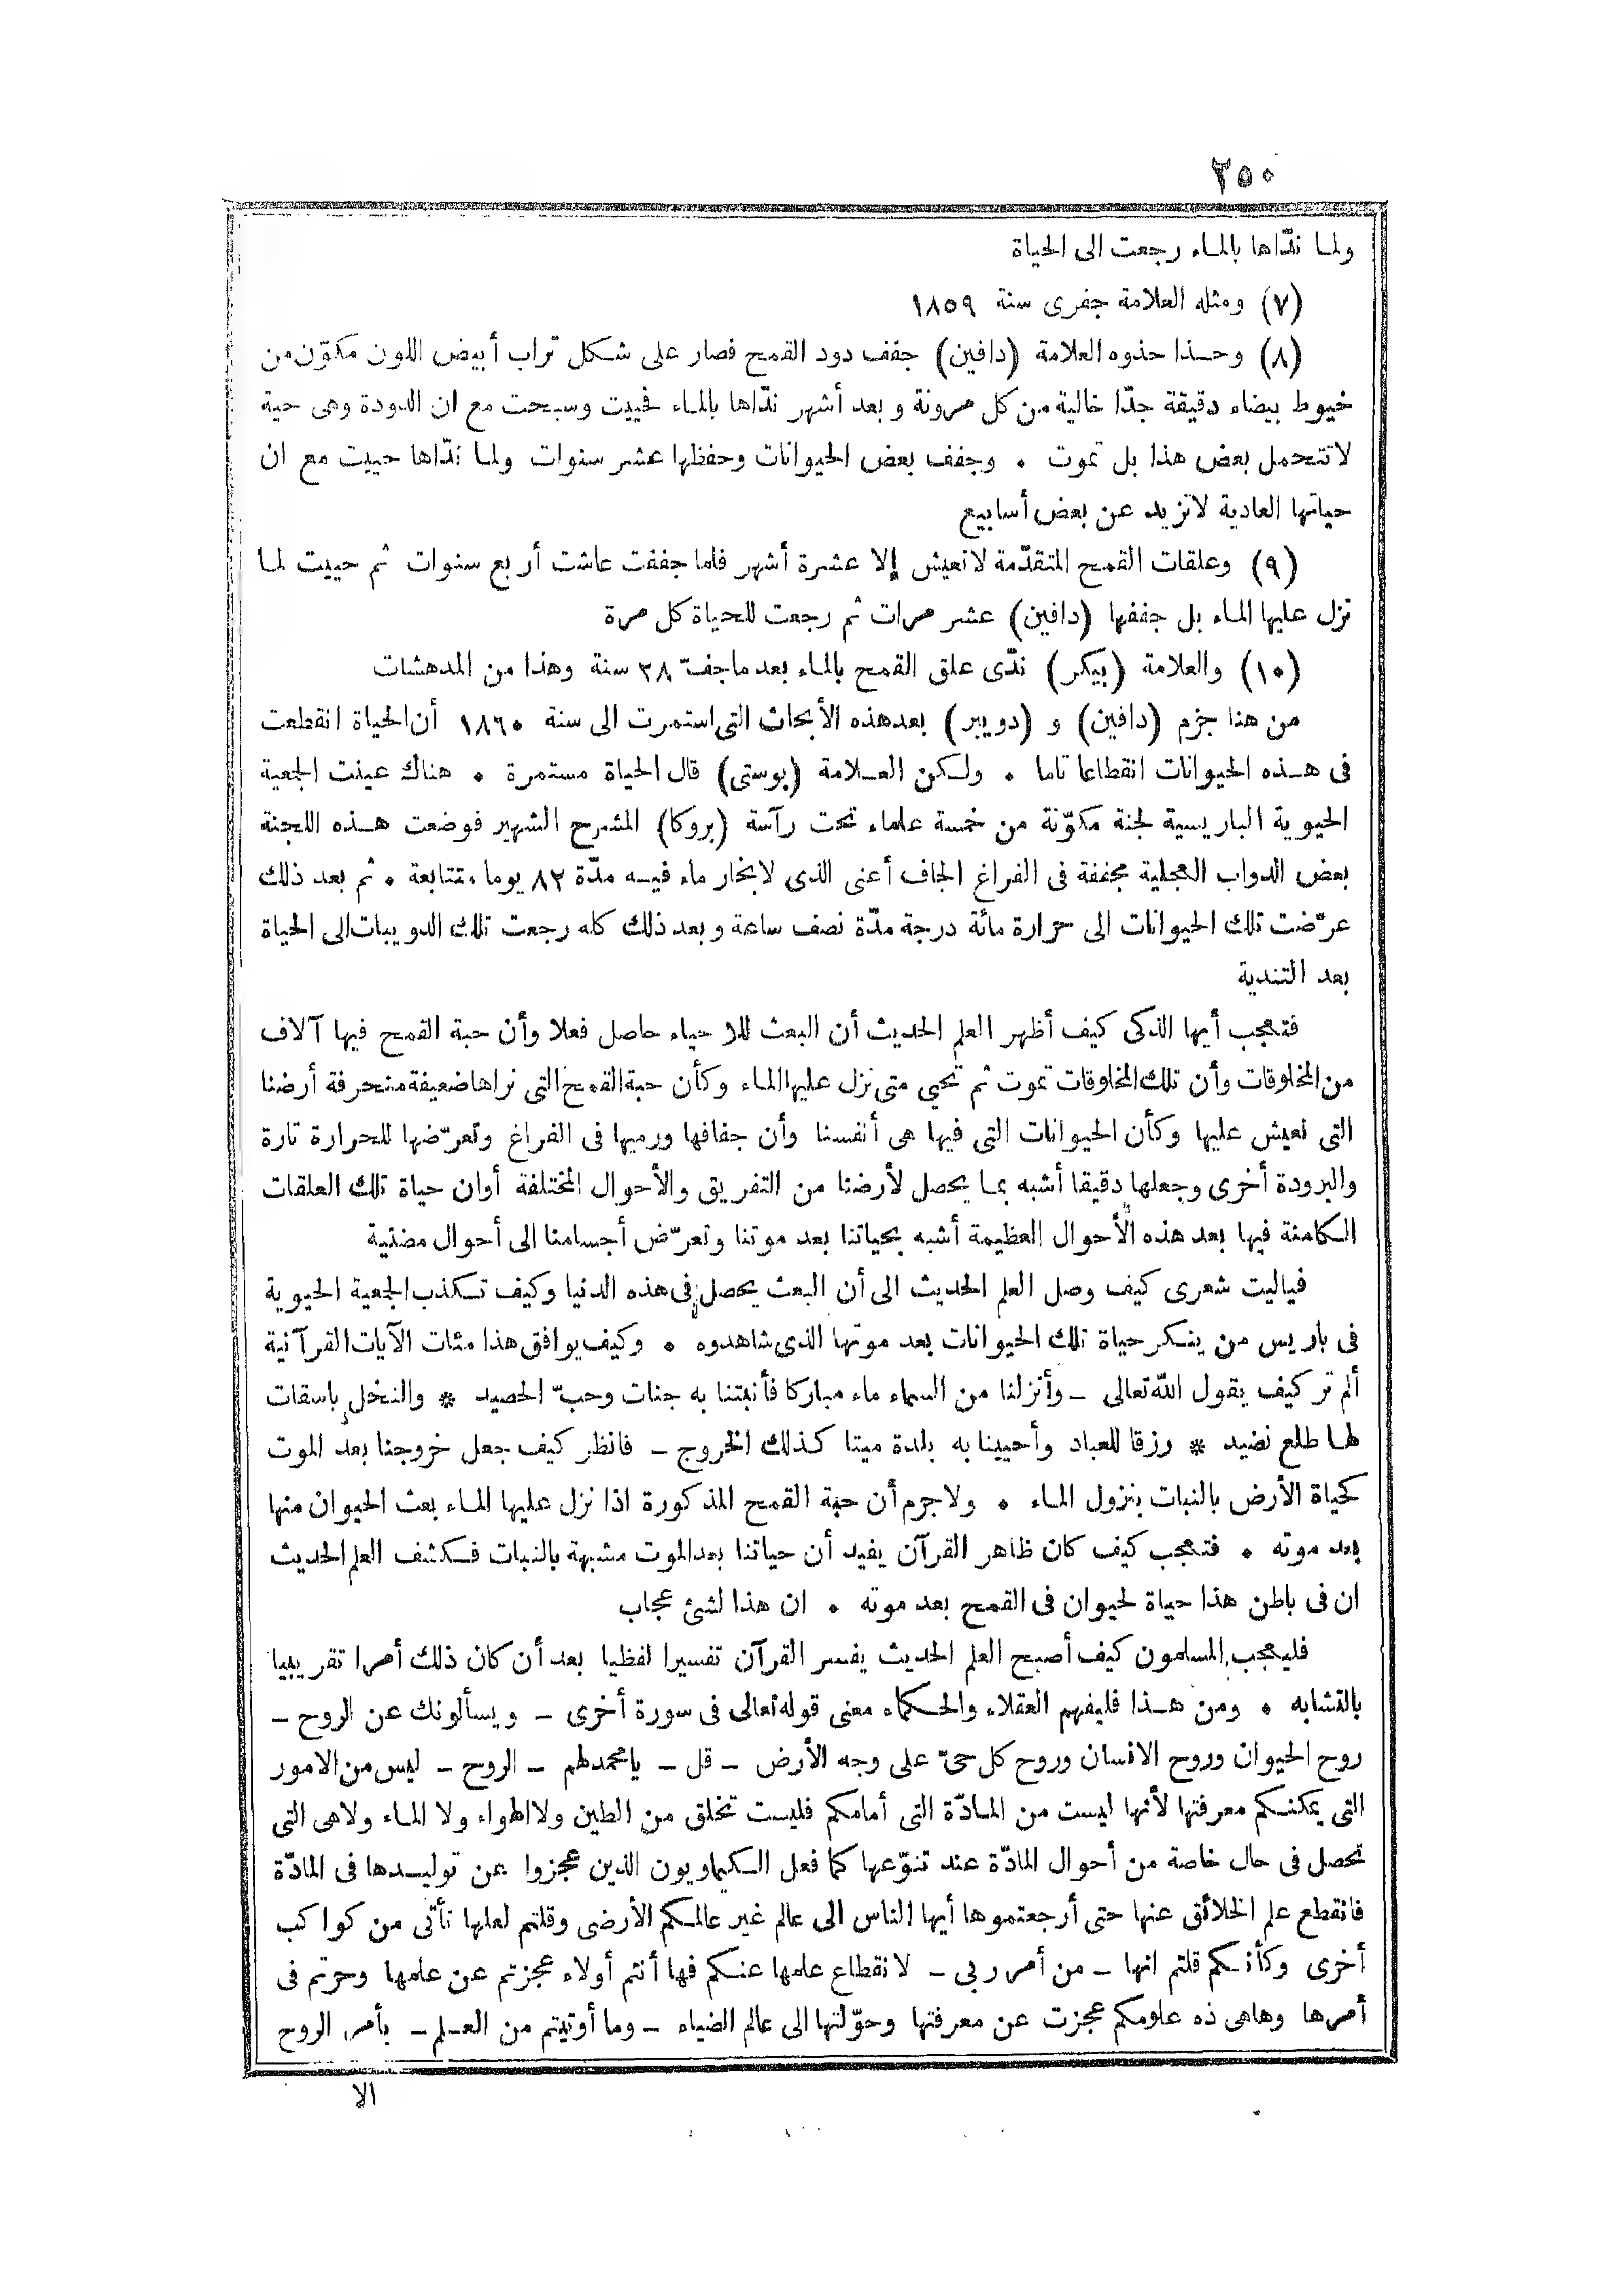 ٢٥٠
ولما ندّاها بالماء رجعت الى الحياة
(٧) ومثله العلامة جفرى سنة ١٨٥٩
(٨) وحذا حذوه العلامة (دافين) جفف دود القمح فصار على شكل تراب أبيض اللون مكوّن من
خيوط بيضاء دقيقة جدّا خالية من كل مرونة و بعد أشهر ندّاها بالماء فحييت وسبحت مع ان الدودة وهى حية
لا تتحمل بعض هذا بل تموت • وجفف بعض الحيوانات وحفظها عشر سنوات ولما ندّاها حييت مع ان
حياتها العادية لا تزيد عن بعض أسابيع
(٩) وعلقات القمح المتقدّمة لا تعيش إلا عشرة أشهر فلما جففت عاشت أر بع سنوات ثم حييت لما
نزل عليها الماء بل جففها (دافين) عشر مرات ثم رجعت للحياة كل مرة
(١٠) والعلامة (بيكر) ندّى علق القمح بالماء بعد ما جفّ ٢٨ سنة وهذا من المدهشات
من هنا جزم (دافين) و (دويير) بعد هذه الأبحاث التى استمرت الى سنة ١٨٦٠ أن الحياة انقطعت
فى هذه الحيوانات انقطاعا تاما • ولكن العلامة (بوستى) قال الحياة مستمرة • هناك عينت الجعية
الحيوية الباريسية لجنة مكوّنة من خمسة علماء تحت رآسة (بروكا) المشرح الشهير فوضعت هذه اللجنة
بعض الدواب العجلية مجففة فى الفراغ الجاف أعنى الذى لا بخار ماء فيه مدّة ٨٢ يوما متتابعة • ثم بعد ذلك
عرّضت تلك الحيوانات الى حرارة مائة درجة مدّة نصف ساعة و بعد ذلك كله رجعت تلك الدويبات الى الحياة
بعد التندية
فتعجب أيها الذكى كيف أظهر العلم الحديث أن البعث للأحياء حاصل فعلا وأن حبة القمح فيها آلاف
من المخلوقات وأن تلك المخلوقات تموت ثم تحيي متى نزل عليها الماء وكأن حبة القمح التى نراها ضعيفة منحرفة أرضنا
التى نعيش عليها وكأن الحيوانات التى فيها هى أنفسنا وأن جفافها ورميها فى الفراغ وتعرّضها للحرارة تارة
والبرودة أخرى وجعلها دقيقا أشبه بما يحصل لأرضنا من التفريق والأحوال المختلفة أوان حياة تلك العلقات
الكامنة فيها بعد هذه الأحوال العظيمة أشبه بحياتنا بعد موتنا وتعرّض أجسامنا الى أحوال مضنية
فياليت شعرى كيف وصل العلم الحديث الى أن البعث يحصل فى هذه الدنيا وكيف تكذب الجمعية الحيوية
فى باريس من ينكر حياة تلك الحيوانات بعد موتها الذى شاهدوه • وكيف يوافق هذا مئات الآيات القرآنية
ألم تر كيف يقول الله تعالى ـ وأنزلنا من السماء ماء مباركا فأنبتنا به جنات وحبّ الحصيد * والنخل باسقات
لها طلع نضيد * رزقا للعباد وأحيينا به بلدة ميتا كذلك الخروج ـ فانظر كيف جعل خروجنا بعد الموت
كحياة الأرض بالنبات بنزول الماء • ولاجرم أن حبة القمح المذكورة اذا نزل عليها الماء بعث الحيوان منها
بعد موته • فتعجب كيف كان ظاهر القرآن يفيد أن حياتنا بعد الموت مشبهة بالنبات فكشف العلم الحديث
ان فى باطن هذا حياة لحيوان فى القمح بعد موته • ان هذا لشئ عجاب
فليعجب المسلمون كيف أصبح العلم الحديث يفسر القرآن تفسيرا لفظيا بعد أن كان ذلك أمرا تقريبيا
بالتشابه • ومن هذا فليفهم العقلاء والحكماء معنى قوله تعالى فى سورة أخرى ـ ويسألونك عن الروح ـ
روح الحيوان وروح الانسان وروح كل حىّ على وجه الأرض ـ قل ـ يا محمد لهم ـ الروح ـ ليس من الامور
التى يمكنكم معرفتها لأنها ليست من المادّة التى أمامكم فليست تخلق من الطين ولا الهواء ولا الماء ولا هى التى
تحصل فى حال خاصة من أحوال المادّة عند تنوّعها كما فعل الكيماويون الذين عجزوا عن توليدها فى المادّة
فانقطع علم الخلائق عنها حتى أرجعتموها أيها الناس الى عالم غير عالمكم الأرضى وقلتم لعلها تأتى من كواكب
أخرى وكأنكم قلتم انها ـ من أمر ربى ـ لانقطاع علمها عنكم فها أنتم أولاء عجزتم عن علمها وحرتم فى
أمرها وهاهى ذه علومكم عجزت عن معرفتها وحوّلتها الى عالم الضياء ـ وما أوتيتم من العلم ـ بأمر الروح
الا